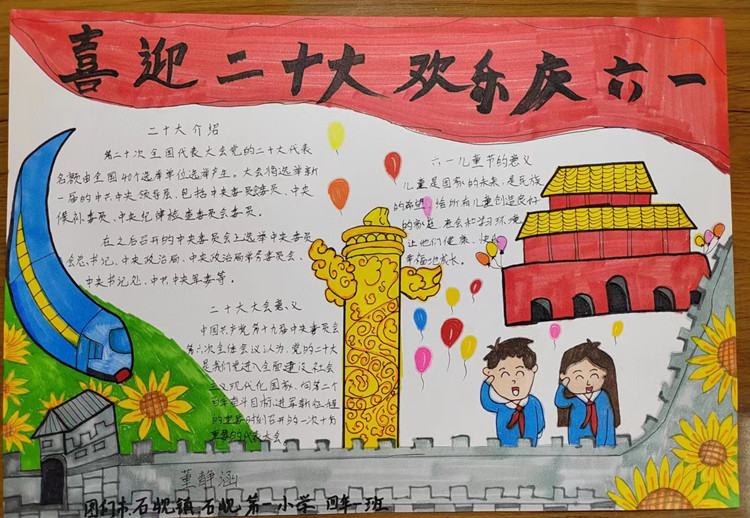 喜迎二十大 欢乐庆六一
二十大介绍
第二十次全国代表大会党的二十大代表
名额由全国40个选举单位选举产生。大会将选举新
一届的中共中央领导层,包括中央委员会委员、中央
候补委员、中央纪律检查委员会委员。
在之后召开的中央委员会上选举中央委员
会总书记、中央政治局、中央政治局常务委员会、
中央书记处、中共中央军委等。
二十大大会意义
中国共产党第十九届中央委员会
第六次全体会议认为,党的二十大
是我们党进入全面建设社会
主义现代化国家、向第二个
百年奋斗目标进军新征程
的重要时刻召开的一次十分
重要的代表大会
六一儿童节的意义
儿童是国家的未来,是民族
的希望,给所有儿童创造良好
的家庭、社会和学习环境
让他们健康、快乐
幸福地成长。
董静涵
石岘镇石岘第一小学 四年一班